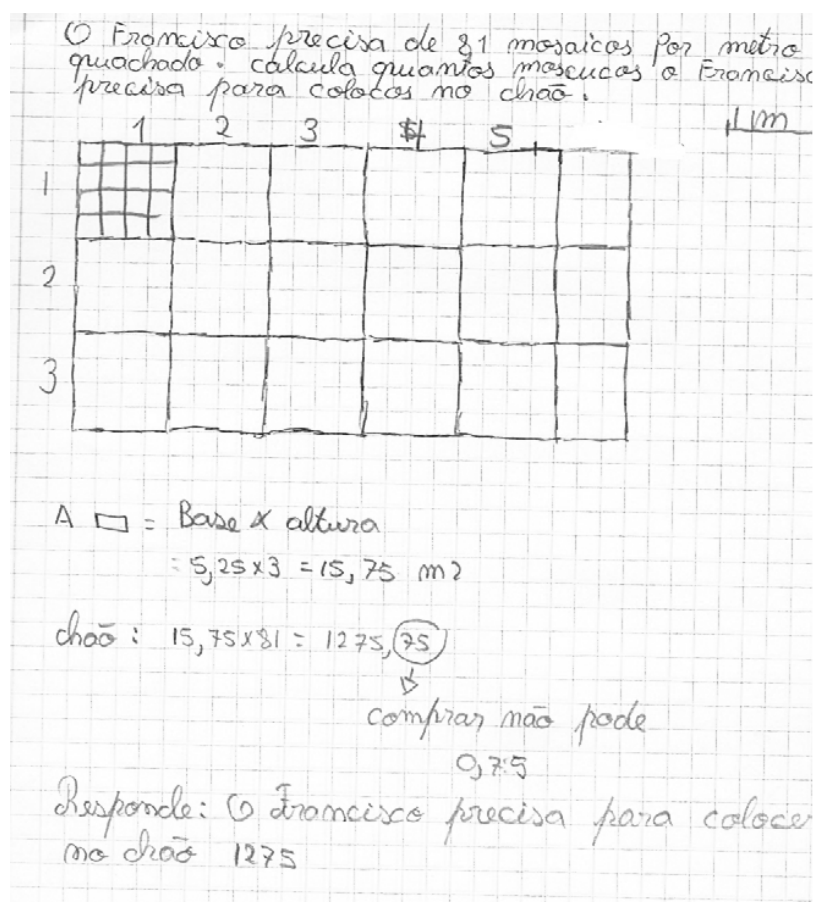 O Francisco precisa de 81 mosaicos Por metro
quachado. calcula quamtos moscucas o Francisc
precisa para colocas no chaõ.
1m
1 2 3 4 5
1
2
3
A ▭ = Base x altura
= 5,25x3 = 15,75 m2
chaõ: 15,75x81 = 1275,75
comprar não pode
0,75
Responde: O Francisco precisa para coloce
no chaõ 1275